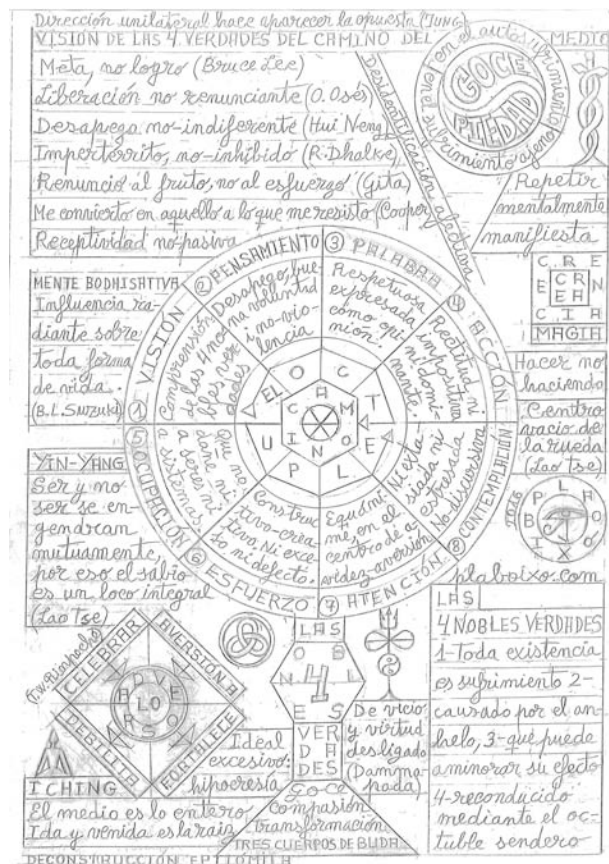 Dirección unilateral hace aparecer la opuesta (JUNG)
VISIÓN DE LAS 4 VERDADES DEL CAMINO DEL MEDIO
Meta, no logro (Bruce Lee)
Liberación no renunciante (O. Osés)
Desapego no-indiferente (Hui Neng)
Imperterrito, no-inhibido (R. Dhalke)
Renuncio al fruto, no al esfuerzo (Gita)
Me convierto en aquello a lo que me resisto (Cooper)
Receptividad no-pasiva
Desidentificación afectiva
GOCE
PIEDAD
en el autosufrimiento
en el sufrimiento ajeno
Repetir
mentalmente
manifiesta
CRE
E CRE N
EA
CIA
MAGIA
MENTE BODHISATTVA
Influencia ra-
diante sobre
toda forma
de vida.
(B. L. Suzuki)
Hacer no
haciendo
Centro
vacio de
la rueda
(Lao Tse)
YIN-YANG
Ser y no
ser se en-
gendran
mutuamente,
por eso el sabio
es un loco integral
(Lao Tse)
1 VISIÓN
Comprensión
de las 4 nobles
verdades
2 PENSAMIENTO
Desapego, bue-
na voluntad
i no-vio-
lencia
3 PALABRA
Respetuosa
expresada
como opi-
nión.
4 ACCIÓN
Reatitud ni
impositiva
ni domi-
nante.
5 OCUPACIÓN
Que no
dañe ni
a seres ni
a sistemas.
6 ESFUERZO
Construc-
tivo-crea-
tivo. Ni exce-
so ni defecto.
7 ATENCIÓN
Equánime
en el
centro de a-
videz-aversión
8 CONTEMPLACIÓN
Ni exta-
siada ni
estresada
No-discursiva
EL OCTUPLE
CAMINO
PLABOIXO
plaboixo.com
LAS
4 NOBLES VERDADES
1-Toda existencia
es sufrimiento 2-
causado por el an-
helo, 3-que puede
aminorar su efecto
4-reconducido
mediante el oc-
tuble sendero
CELEBRAR
AVERSIÓN
DEBILITA
FORTALECE
LO ADVERSO
I CHING
El medio es lo entero
Ida y venida es la raiz
LAS
4
NOBLES
VER
DA
DES
Ideal
excesivo:
hipocresía
De vicio
y virtud
desligado
(Damma-
pada)
Goce
Compasión
Transformación
TRES CUERPOS DE BUDA
DECONSTRUCCIÓN